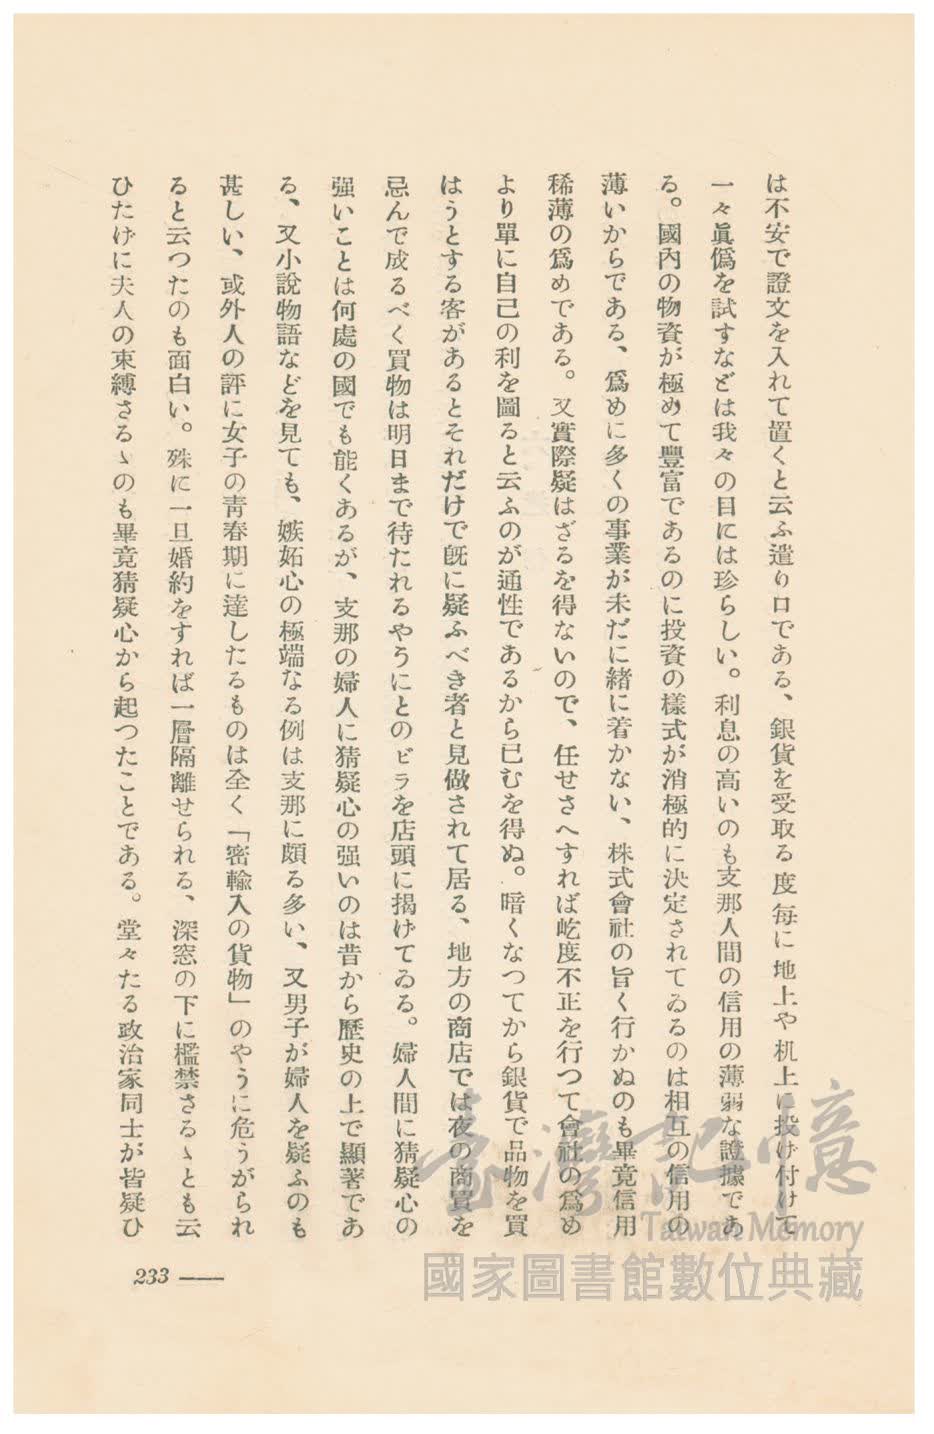 は不安で證文を入れて置くと云ふ遣り口である、銀貨を受取る度每に地上や机上に投げ付けて
一々眞僞を試すなどは我々の目には珍らしい。利息の高いのも支那人間の信用の薄弱な證據であ
る。國內の物資が極めて豐富であるのに投資の樣式が消極的に決定されてゐるのは相互の信用の
薄いからである、爲めに多くの事業が未だに緖に着かない、株式會社の旨く行かぬのも畢竟信用
稀薄の爲めである。又實際疑はざるを得ないので、任せさへすれば屹度不正を行つて會社の爲め
より單に自己の利を圖ると云ふのが通性であるから已むを得ぬ。暗くなつてから銀貨で品物を買
はうとする客があるとそれだけで旣に疑ふべき者と見做されて居る、地方の商店では夜の商賣を
忌んで成るべく買物は明日まで待たれるやうにとのビラを店頭に揭げてゐる。婦人間に猜疑心の
强いことは何處の國でも能くあるが、支那の婦人に猜疑心の强いのは昔から歷史の上で顯著であ
る、又小說物語などを見ても、嫉妬心の極端なる例は支那に頗る多い、又男子が婦人を疑ふのも
甚しい、或外人の評に女子の靑春期に達したるものは全く「密輸入の貨物」のやうに危うがられ
ると云つたのも面白い。殊に一旦婚約をすれば一層隔離せられる、深窓の下に檻禁さるゝとも云
ひたげに夫人の束縛さるゝのも畢竟猜疑心から起つたことである。堂々たる政治家同士が皆疑ひ
233
臺灣記憶
Taiwan Memory
國家圖書館數位典藏